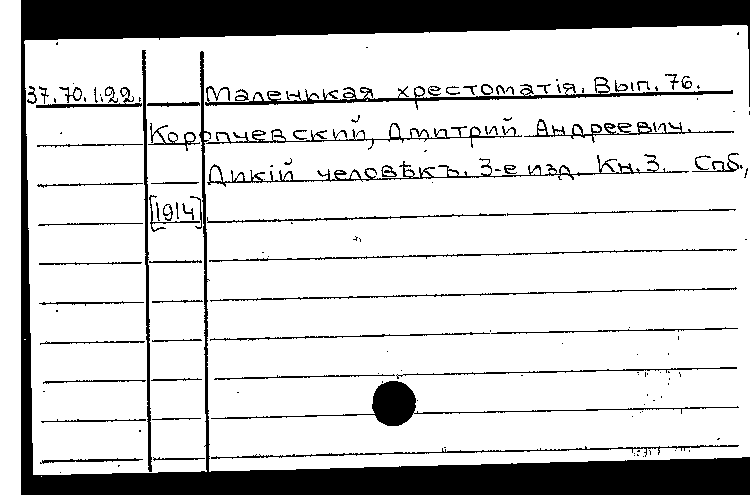 37.70.1.22. Маленькая хрестоматія. Вып. 76.
Коропчевский, Дмитрий Андреевич.
Дикій человѣкъ. 3-е изд. Кн. 3. Спб.,
[1914]